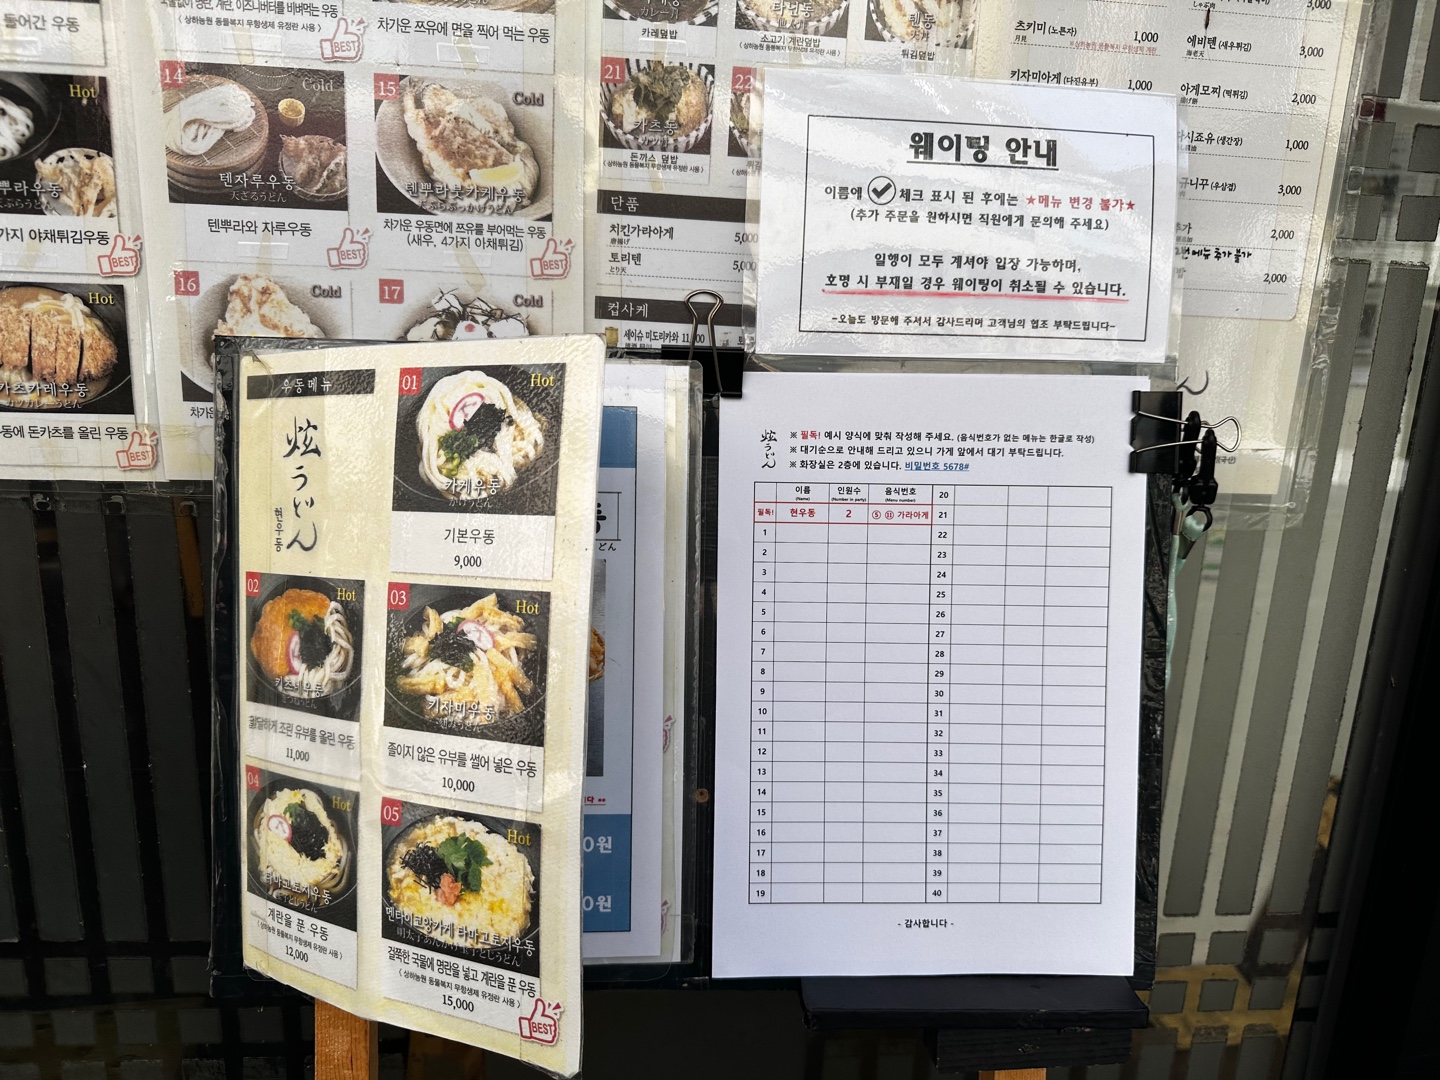 들어간 우동
차가운 쯔유에 면을 찍어 먹는 우동
BEST
Hot
뿌라우동
가지 야채튀김우동
BEST
14
Cold
텐자루우동
天ざるうどん
텐뿌라와 자루우동
BEST
15
Cold
텐뿌라붓카케우동
天ぷらぶっかけうどん
차가운 우동면에 쯔유를 부어먹는 우동
(새우, 4가지 야채튀김)
BEST
Hot
카츠카레우동
カツカレーうどん
동에 돈카츠를 올린 우동
BEST
16
Cold
17
Cold
카레덮밥
소고기 계란덮밥
튀김덮밥
21
카츠동
カツ丼
돈까스 덮밥
22
단품
치킨가라아게
5,000
토리텐
とり天
5,000
컵사케
세이슈 미도리카와
3,000
츠키미 (노른자)
月見
1,000
에비텐 (새우튀김)
海老天
3,000
키자미아게 (다진유부)
1,000
아게모찌 (떡튀김)
揚げ餅
2,000
다시죠유 (생간장)
1,000
규니꾸 (우삼겹)
3,000
2,000
2,000
웨이팅 안내
이름에 체크 표시 된 후에는 ★메뉴 변경 불가★
(추가 주문을 원하시면 직원에게 문의해 주세요)
일행이 모두 계셔야 입장 가능하며,
호명 시 부재일 경우 웨이팅이 취소될 수 있습니다.
-오늘도 방문해 주셔서 감사드리며 고객님의 협조 부탁드립니다-
우동메뉴
炫うどん
현우동
01
Hot
카케우동
かけうどん
기본우동
9,000
02
Hot
키츠네우동
きつねうどん
달달하게 조린 유부를 올린 우동
11,000
03
Hot
키자미우동
졸이지 않은 유부를 썰어 넣은 우동
10,000
04
Hot
타마고토지우동
玉子とじうどん
계란을 푼 우동
〈상하농원 동물복지 무항생제 유정란 사용〉
12,000
05
Hot
멘타이코앙카케 타마고토지우동
明太子あんかけ玉子とじうどん
걸쭉한 국물에 명란을 넣고 계란을 푼 우동
〈상하농원 동물복지 무항생제 유정란 사용〉
15,000
BEST
0원
0원
炫うどん
※ 필독! 예시 양식에 맞춰 작성해 주세요. (음식번호가 없는 메뉴는 한글로 작성)
※ 대기순으로 안내해 드리고 있으니 가게 앞에서 대기 부탁드립니다.
※ 화장실은 2층에 있습니다. 비밀번호 5678#
이름 인원수 음식번호 20
(Name) (Number in party) (Menu number)
필독! 현우동 2 ⑤ ⑪ 가라아게 21
1 22
2 23
3 24
4 25
5 26
6 27
7 28
8 29
9 30
10 31
11 32
12 33
13 34
14 35
15 36
16 37
17 38
18 39
19 40
- 감사합니다 -